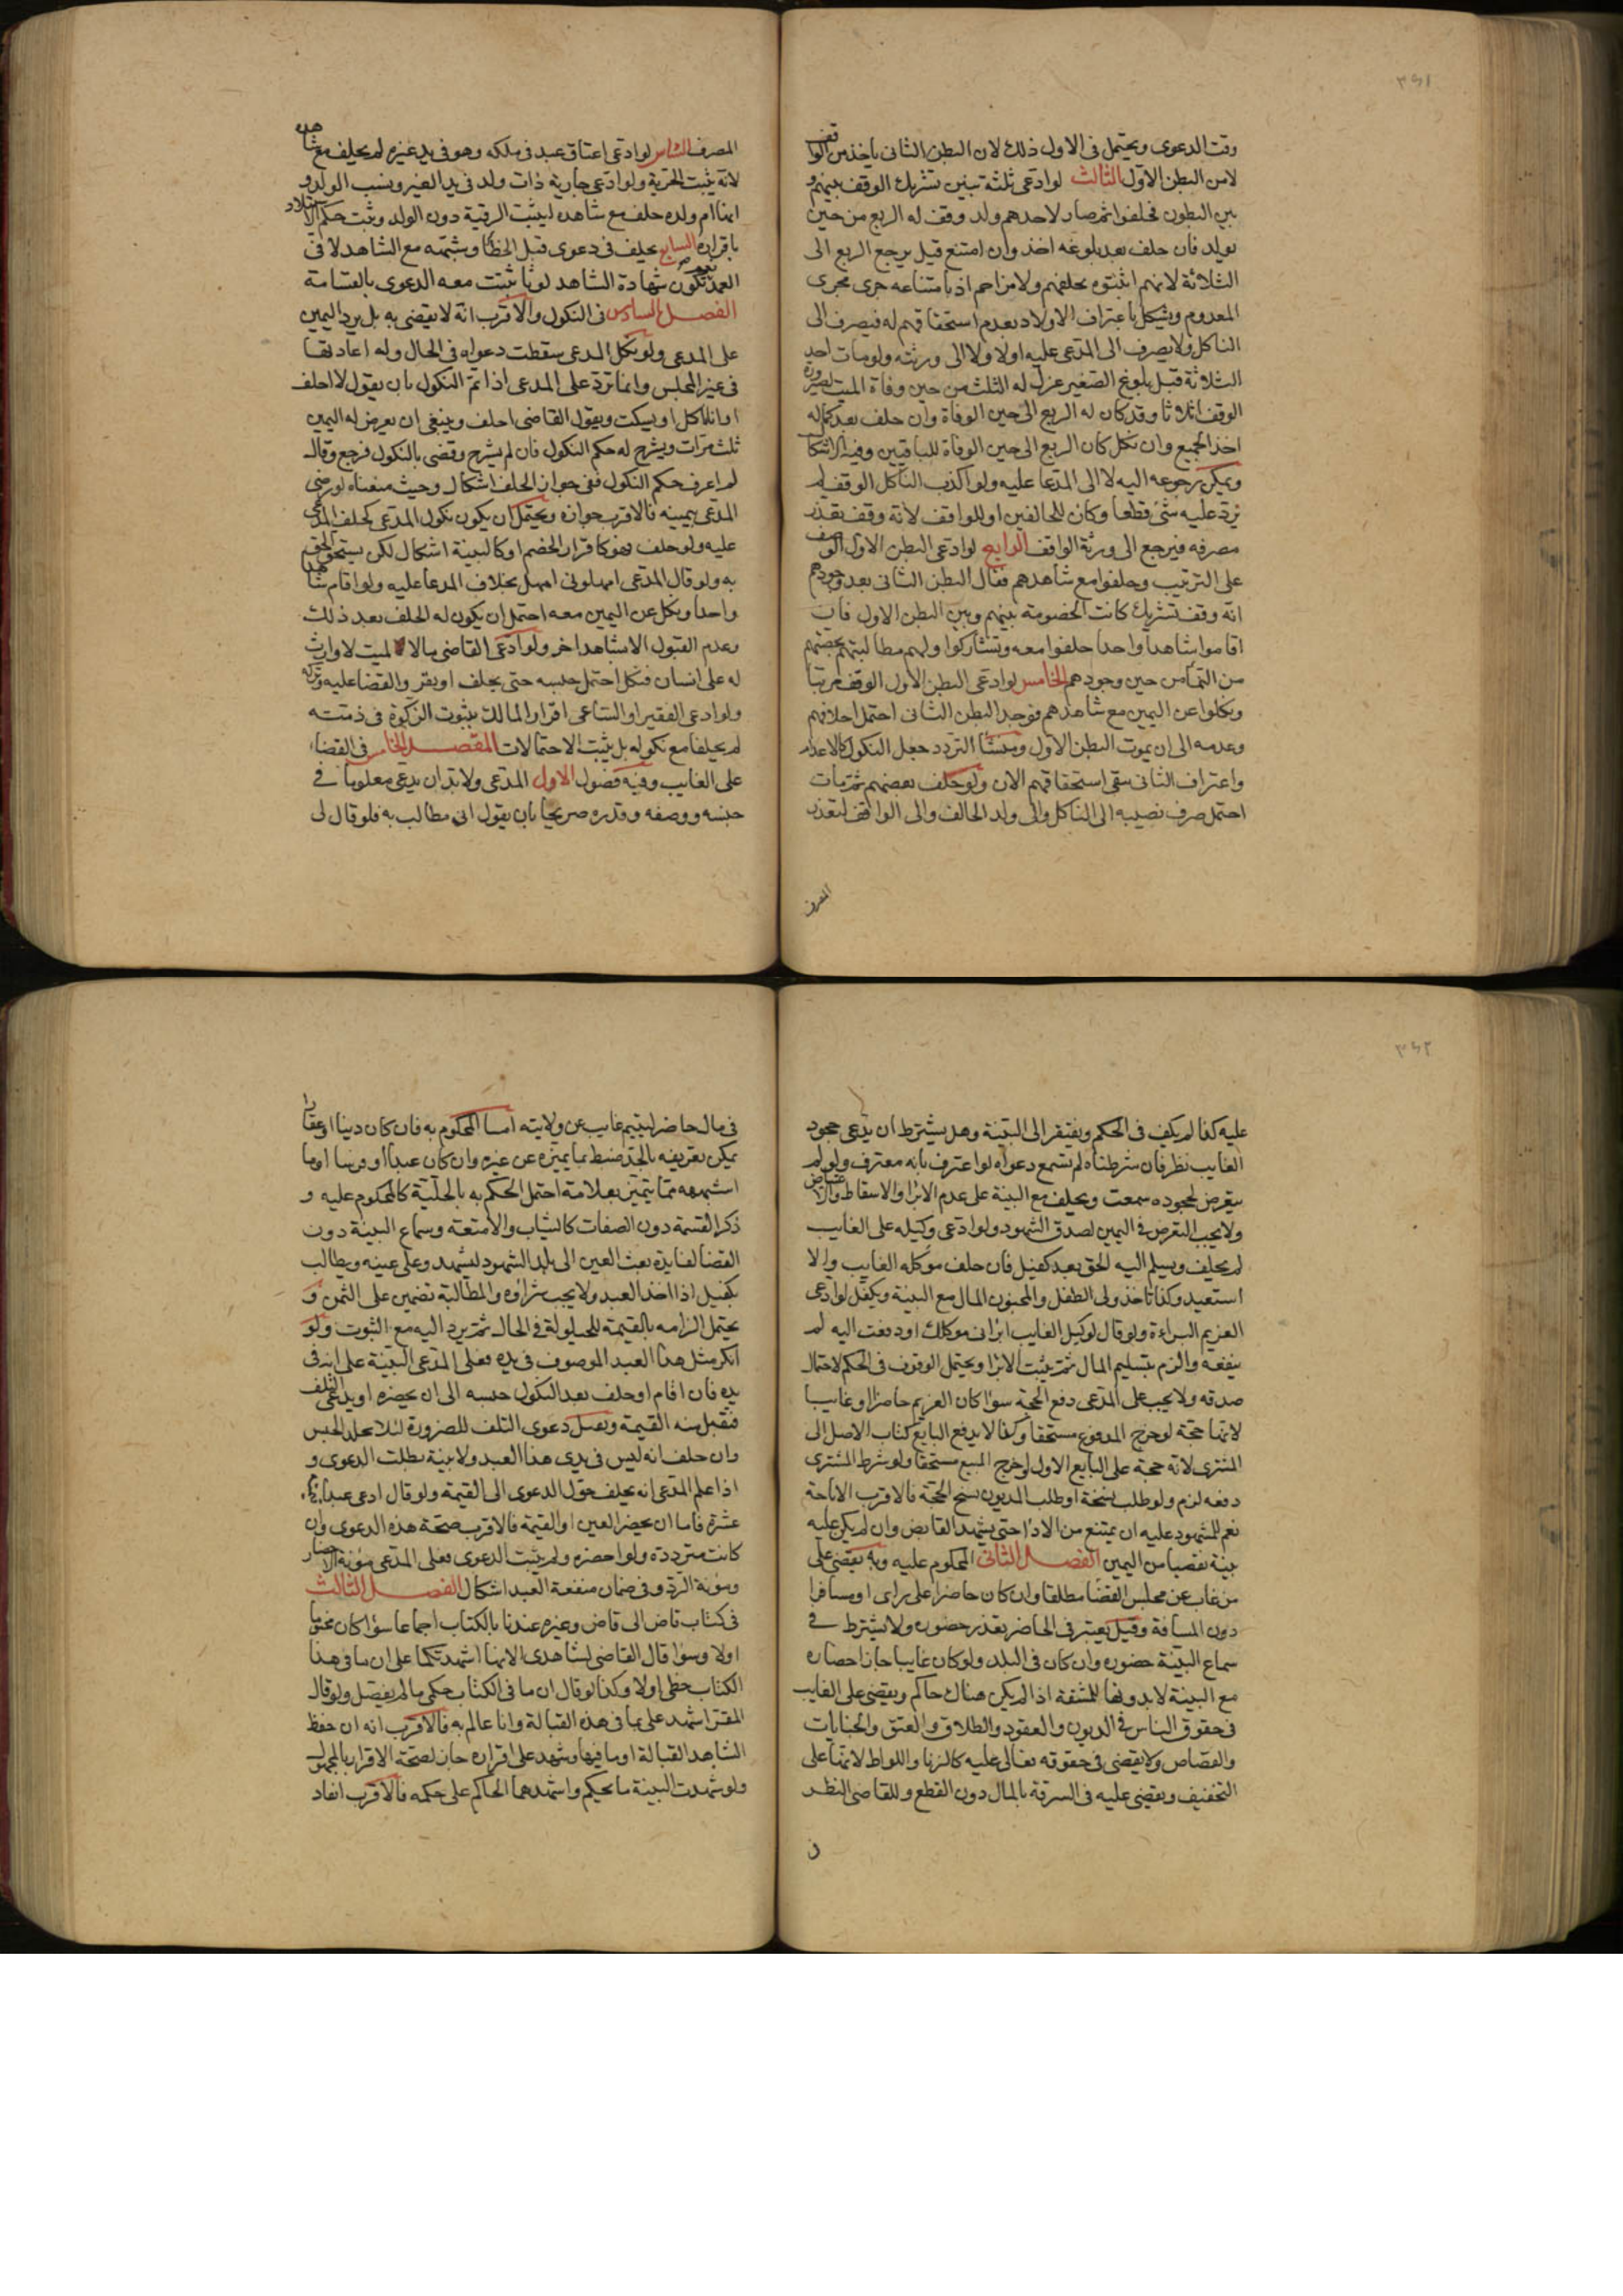 ٣٤١
وقت الدعوى ويحتمل فى الاول ذلك لان البطن الثانى ياخذ من الواقف
لا من البطن الاول الثالث لو ادعى ثلثة بنين تشريك الوقف بينهم و
بين البطون فحلفوا ثم صار لاحدهم ولد وقف له الربع من حين
يولد فان حلف بعد بلوغه اخذ وان امتنع قيل يرجع الربع الى
الثلاثة لانهم اثبتوه بحلفهم ولا مزاحم اذ بامتناعه جرى مجرى
المعدوم ويشكل باعتراف الاولاد بعدم استحقاقهم له فيصرف الى
الناكل ولا يصرف الى المدعى عليه اولا ولا الى ورثته ولو مات احد
الثلاثة قبل بلوغ الصغير عزل له الثلث من حين وفاة الميت لصيرورة
الوقف اثلاثا وقد كان له الربع الى حين الوفاة وان حلف بعد كماله
اخذ الجميع وان نكل كان الربع الى حين الوفاة للباقيين وفيه الاشكال
ويمكن رجوعه اليه لا الى المدعا عليه ولو اكذب الناكل الوقف لم
ترد عليه شئ قطعا وكان للحالفين او للواقف لانه وقف تعذر
مصرفه فيرجع الى ورثة الواقف الرابع لو ادعى البطن الاول الوقف
على الترتيب وحلفوا مع شاهدهم فقال البطن الثانى بعد وجودهم
انه وقف تشريك كانت الخصومة بينهم وبين البطن الاول فان
اقاموا شاهدا واحدا حلفوا معه وتشاركوا ولهم مطالبتهم بحصتهم
من النماء من حين وجودهم الخامس لو ادعى البطن الاول الوقف مرتبا
ونكلوا عن اليمين مع شاهدهم فوجد البطن الثانى احتمل احلافهم
وعدمه الى ان يموت البطن الاول ومنشأ التردد جعل النكول كالاعدام
واعتراف الثانى بنفى استحقاقهم الان ولو حلف بعضهم ثم مات
احتمل صرف نصيبه الى الناكل والى ولد الحالف والى الواقف لتعذر
المصرف
المصرف السادس لو ادعى اعتاق عبد فى ملكه وهو فى يد غيره لم يحلف مع شاهده
لانه يثبت الحرية ولو ادعى جارية ذات ولد فى يد الغير ونسب الولد و
انها ام ولده حلف مع شاهده ليثبت الرقية دون الولد وثبت حكم الاستيلاد
باقراره السابع يحلف فى دعوى قتل الخطأ وشبهه مع الشاهد لا فى
العمد نعم تكون شهادة الشاهد لوثا تثبت معه الدعوى بالقسامة
الفصل السادس فى النكول والاقرب انه لا يقضى به بل يرد اليمين
على المدعى ولو نكل المدعى سقطت دعواه فى الحال وله اعادتها
فى غير المجلس وانما ترد على المدعى اذا تم النكول بان يقول لا احلف
او انا ناكل او يسكت ويقول القاضى احلف وينبغى ان يعرض له اليمين
ثلث مرات ويشرح له حكم النكول فان لم يشرح وقضى بالنكول فرجع وقال
لم اعرف حكم النكول ففى جواز الحلف اشكال وحيث منعناه لو رضى
المدعى بيمينه فالاقرب جوازه ويحتمل ان يكون نكول المدعى كحلف المدعى
عليه ولو حلف فهو كاقرار الخصم او كالبينة اشكال لكن يستحق الحق
به ولو قال المدعى امهلونى امهل بخلاف المدعا عليه ولو اقام شاهدا
واحدا ونكل عن اليمين معه احتمل ان يكون له الحلف بعد ذلك
وعدم القبول الا بشاهد اخر ولو ادعى القاضى مالا لميت لا وارث
له على انسان فنكل احتمل حبسه حتى يحلف او يقر والقضا عليه وتركه
ولو ادعى الفقير او الساعى اقرار المالك بثبوت الزكوة فى ذمته
لم يحلفا مع نكوله بل يثبت الاحتمالات المقصد الخامس فى القضاء
على الغايب وفيه فصول الاول المدعى ولا بد ان يدعى معلوما فى
جنسه ووصفه وقدره صريحا بان يقول انى مطالب به فلو قال لى
٣٤٢
عليه كذا لم يكف فى الحكم ويفتقر الى البينة وهل يشترط ان يدعى جحود
الغايب نظر فان شرطناه لم تسمع دعواه لو اعترف بانه معترف ولو لم
يتعرض لجحوده سمعت ويحلف مع البينة على عدم الابرا والاسقاط والاعتياض
ولا يجب التعرض فى اليمين لصدق الشهود ولو ادعى وكيله على الغايب
لم يحلف ويسلم اليه الحق بعد كفيل فان حلف موكله الغايب والا
استعيد وكذا ياخذ ولى الطفل والمجنون المال مع البينة ويكفل لو ادعى
الغريم البراءة ولو قال لوكيل الغايب ابرانى موكلك او دفعت اليه لم
ينفعه والزم بتسليم المال ثم يثبت الابرا ويحتمل الوقوف فى الحكم لاحتمال
صدقه ولا يجب على المدعى دفع الحجة سوا كان الغريم حاضرا او غايبا
لانها حجة لو خرج المدفوع مستحقا وكذا لا يدفع البايع كتاب الاصل الى
المشترى لانه حجة على البايع الاول لو خرج المبيع مستحقا ولو شرط المشترى
دفعه لزم ولو طلب نسخة او طلب المديون نسخ الحجة فالاقرب الاباحة
نعم للمشهود عليه ان يمتنع من الادا حتى يشهد القابض وان لم يكن عليه
بينة تفصيا من اليمين الفصل الثانى المحكوم عليه وبه يقضى على
من غاب عن مجلس القضا مطلقا وان كان حاضرا على راى او مسافرا
دون المسافة وقيل يعتبر فى الحاضر تعذر حضوره ولا يشترط فى
سماع البينة حضوره وان كان فى البلد ولو كان غايبا جاز احضاره
مع البينة لا بدونها للمشقة اذا لم يكن هناك حاكم ويقضى على الغايب
فى حقوق الناس فى الديون والعقود والطلاق والعتق والجنايات
والقصاص ولا يقضى فى حقوقه تعالى عليه كالزنا واللواط لانها على
التخفيف ويقضى عليه فى السرقة بالمال دون القطع وللقاضى النظر
فى مال حاضر ليتيم غايب عن ولايته اما المحكوم به فان كان دينا او عقارا
يمكن تعريفه بالحد ضبط بما يميزه عن غيره وان كان عبدا او فرسا او ما
اشبهه مما يتميز بعلامة احتمل الحكم به بالحلية كالمحكوم عليه و
ذكر القسمة دون الصفات كالثياب والامتعة وسماع البينة دون
القضا لفايدة بعث العين الى بلد الشهود ليشهدوا على عينه ويطالب
بكفيل اذا اخذ العبد ولا يجب شراؤه والمطالبة تضمين على الثمن و
يحتمل الزامه بالقيمة للحيلولة فى الحال ثم يرد اليه مع الثبوت ولو
انكر مثل هذا العبد الموصوف فى يده فعلى المدعى البينة على انه فى
يده فان اقام او حلف بعد النكول حبسه الى ان يحضره او يدعى التلف
فتقبل منه القيمة وتقبل دعوى التلف للضرورة لئلا يخلد الحبس
وان حلف انه ليس فى يدى هذا العبد ولا بينة بطلت الدعوى و
اذا علم المدعى انه يحلف حول الدعوى الى القيمة ولو قال ادعى عبدا قيمته
عشرة فاما ان يحضر العين او القيمة فالاقرب صحة هذه الدعوى وان
كانت مترددة ولو احضره ولم يثبت الدعوى فعلى المدعى مؤنة الاحضار
ومؤنة الرد وفى ضمان منفعة العبد اشكال الفصل الثالث
فى كتاب قاض الى قاض ولا عبرة عندنا بالكتاب اجماعا سوا كان مختوما
اولا وسوا قال القاضى لشاهدى الانها اشهدتكما على ان ما فى هذا
الكتاب خطى اولا وكذا لو قال ان ما فى الكتاب حكمى ما لم يفصل ولو قال
المقر اشهد على بما فى هذه القبالة وانا عالم به فالاقرب انه ان حفظ
الشاهد القبالة او ما فيها وشهد على اقراره جاز لصحة الاقرار بالمجهول
ولو شهدت البينة بالحكم واشهدهما الحاكم على حكمه فالاقرب انفاذ